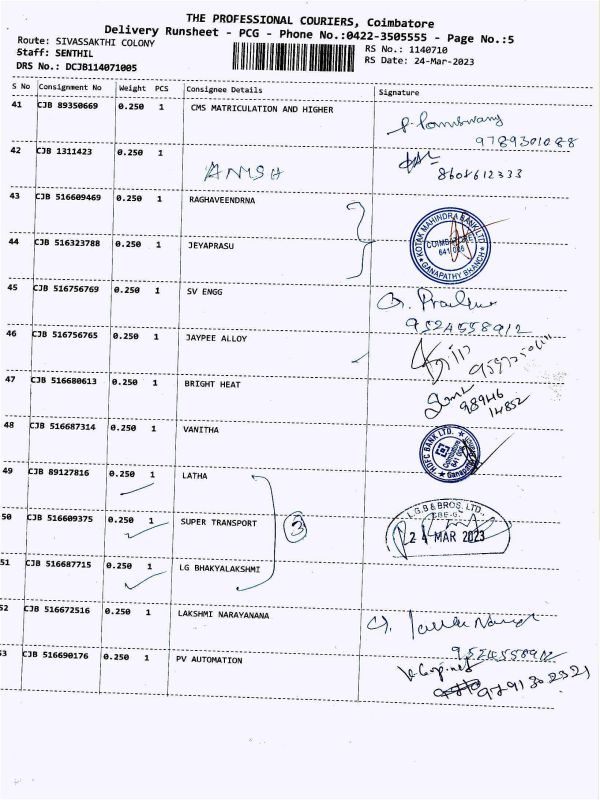 THE PROFESSIONAL COURIERS, Coimbatore
Delivery Runsheet - PCG - Phone No.:0422-3505555 - Page No.:5
Route: SIVASSAKTHI COLONY
RS No.: 1140710
Staff: SENTHIL
RS Date: 24-Mar-2023
DRS No.: DCJB114071005
S No Consignment No Weight PCS Consignee Details Signature
41 CJB 89350669 0.250 1 CMS MATRICULATION AND HIGHER
9789301088
42 CJB 1311423 0.250 1 ANISH 8608612333
43 CJB 516609469 0.250 1 RAGHAVEENDRNA
KOTAK MAHINDRA BANK LTD
COIMBATORE
641 006
GANAPATHY BRANCH
44 CJB 516323788 0.250 1 JEYAPRASU
45 CJB 516756769 0.250 1 SV ENGG
9524558912
46 CJB 516756765 0.250 1 JAYPEE ALLOY
47 CJB 516680613 0.250 1 BRIGHT HEAT
98946
14852
48 CJB 516687314 0.250 1 VANITHA
HDFC BANK LTD.
49 CJB 89127816 0.250 1 LATHA
L.G.B & BROS. LTD.,
CBE-6.
50 CJB 516609375 0.250 1 SUPER TRANSPORT 3 24 MAR 2023
51 CJB 516687715 0.250 1 LG BHAKYALAKSHMI
52 CJB 516672516 0.250 1 LAKSHMI NARAYANANA
9524558912
53 CJB 516690176 0.250 1 PV AUTOMATION
9791302321